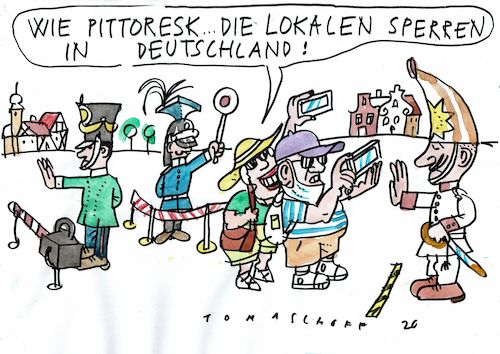 WIE PITTORESK...DIE LOKALEN SPERREN
IN DEUTSCHLAND!
TOMASCHOFF 20